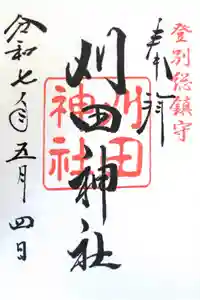 登別総鎮守
奉拝
刈田神社
刈田神社
令和七年五月四日